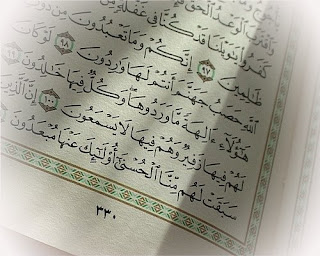 ٱلْوَعْدُ ٱلْحَقُّ
كَفَرُوا۟ يَٰوَيْلَنَا قَدْ كُنَّا فِى غَفْلَةٍ
ظَٰلِمِينَ ٩٧ إِنَّكُمْ وَمَا تَعْبُدُونَ مِن
ٱللَّهِ حَصَبُ جَهَنَّمَ أَنتُمْ لَهَا وَٰرِدُونَ ٩٨
هَٰٓؤُلَآءِ ءَالِهَةً مَّا وَرَدُوهَا وَكُلٌّ فِيهَا خَٰلِدُونَ ٩٩ لَوْ كَانَ
لَهُمْ فِيهَا زَفِيرٌ وَهُمْ فِيهَا لَا يَسْمَعُونَ ١٠٠ إِنَّ ٱلَّذِينَ
سَبَقَتْ لَهُم مِّنَّا ٱلْحُسْنَىٰٓ أُو۟لَٰٓئِكَ عَنْهَا مُبْعَدُونَ
٣٣٠